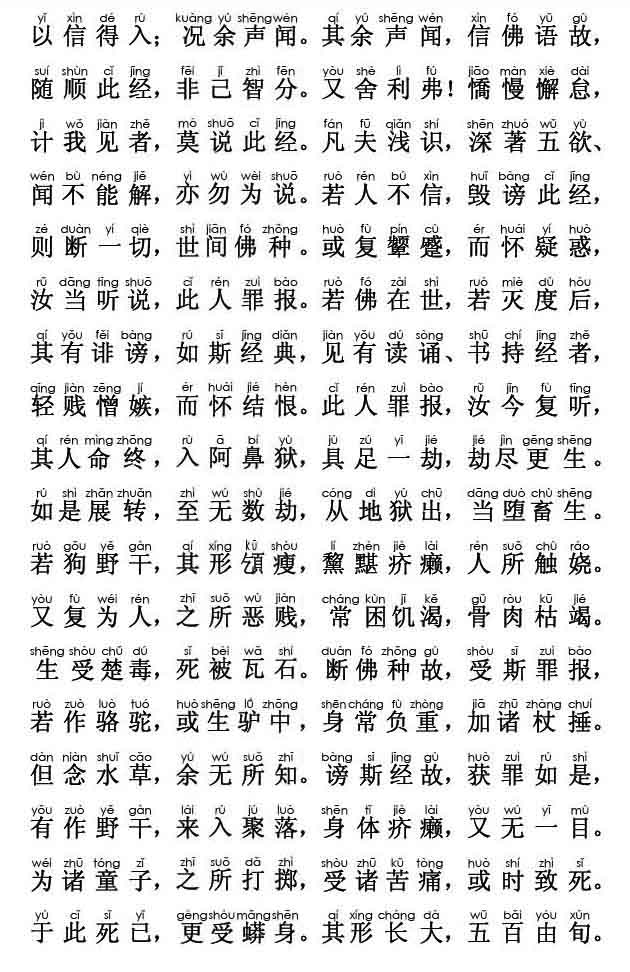 yǐ xìn dé rù kuàng yú shēng wén qí yú shēng wén xìn fó yǔ gù
以信得入；况余声闻。其余声闻，信佛语故，
suí shùn cǐ jīng fēi jǐ zhì fēn yòu shè lì fú jiāo màn xiè dài
随顺此经，非己智分。又舍利弗！憍慢懈怠，
jì wǒ jiàn zhě mò shuō cǐ jīng fán fū qiǎn shí shēn zhuó wǔ yù
计我见者，莫说此经。凡夫浅识，深著五欲、
wén bù néng jiě yì wù wèi shuō ruò rén bú xìn huǐ bàng cǐ jīng
闻不能解，亦勿为说。若人不信，毁谤此经，
zé duàn yí qiè shì jiān fó zhǒng huò fù pín cù ér huái yí huò
则断一切，世间佛种。或复颦蹙，而怀疑惑，
rǔ dāng tīng shuō cǐ rén zuì bào ruò fó zài shì ruò miè dù hòu
汝当听说，此人罪报。若佛在世，若灭度后，
qí yǒu fěi bàng rú sī jīng diǎn jiàn yǒu dú sòng shū chí jīng zhě
其有诽谤，如斯经典，见有读诵、书持经者，
qīng jiàn zēng jí ér huái jié hèn cǐ rén zuì bào rǔ jīn fù tīng
轻贱憎嫉，而怀结恨。此人罪报，汝今复听，
qí rén mìng zhōng rù ā bí yù jù zú yī jié jié jìn gēng shēng
其人命终，入阿鼻狱，具足一劫，劫尽更生。
rú shì zhǎn zhuǎn zhì wú shù jié cóng dì yù chū dāng duò chù shēng
如是展转，至无数劫，从地狱出，当堕畜生。
ruò gǒu yě gàn qí xíng kū shòu lí zhèn jiè lài rén suǒ chù ráo
若狗野干，其形頟瘦，黧黮疥癞，人所触娆。
yòu fù wéi rén zhī suǒ wù jiàn cháng kùn jī kě gǔ ròu kū jié
又复为人，之所恶贱，常困饥渴，骨肉枯竭。
shēng shòu chǔ dú sǐ bèi wǎ shí duàn fó zhǒng gù shòu sī zuì bào
生受楚毒，死被瓦石。断佛种故，受斯罪报，
ruò zuò luò tuó huò shēng lǘ zhōng shēn cháng fù zhòng jiā zhū zhàng chuí
若作骆驼，或生驴中，身常负重，加诸杖捶。
dàn niàn shuǐ cǎo yú wú suǒ zhī bàng sī jīng gù huò zuì rú shì
但念水草，余无所知。谤斯经故，获罪如是，
yǒu zuò yě gàn lái rù jù luò shēn tǐ jiè lài yòu wú yī mù
有作野干，来入聚落，身体疥癞，又无一目。
wéi zhū tóng zǐ zhī suǒ dǎ zhì shòu zhū kǔ tòng huò shí zhì sǐ
为诸童子，之所打掷，受诸苦痛，或时致死。
yú cǐ sǐ yǐ gèng shòu mǎng shēn qí xíng cháng dà wǔ bǎi yóu xún
于此死已，更受蟒身。其形长大，五百由旬。